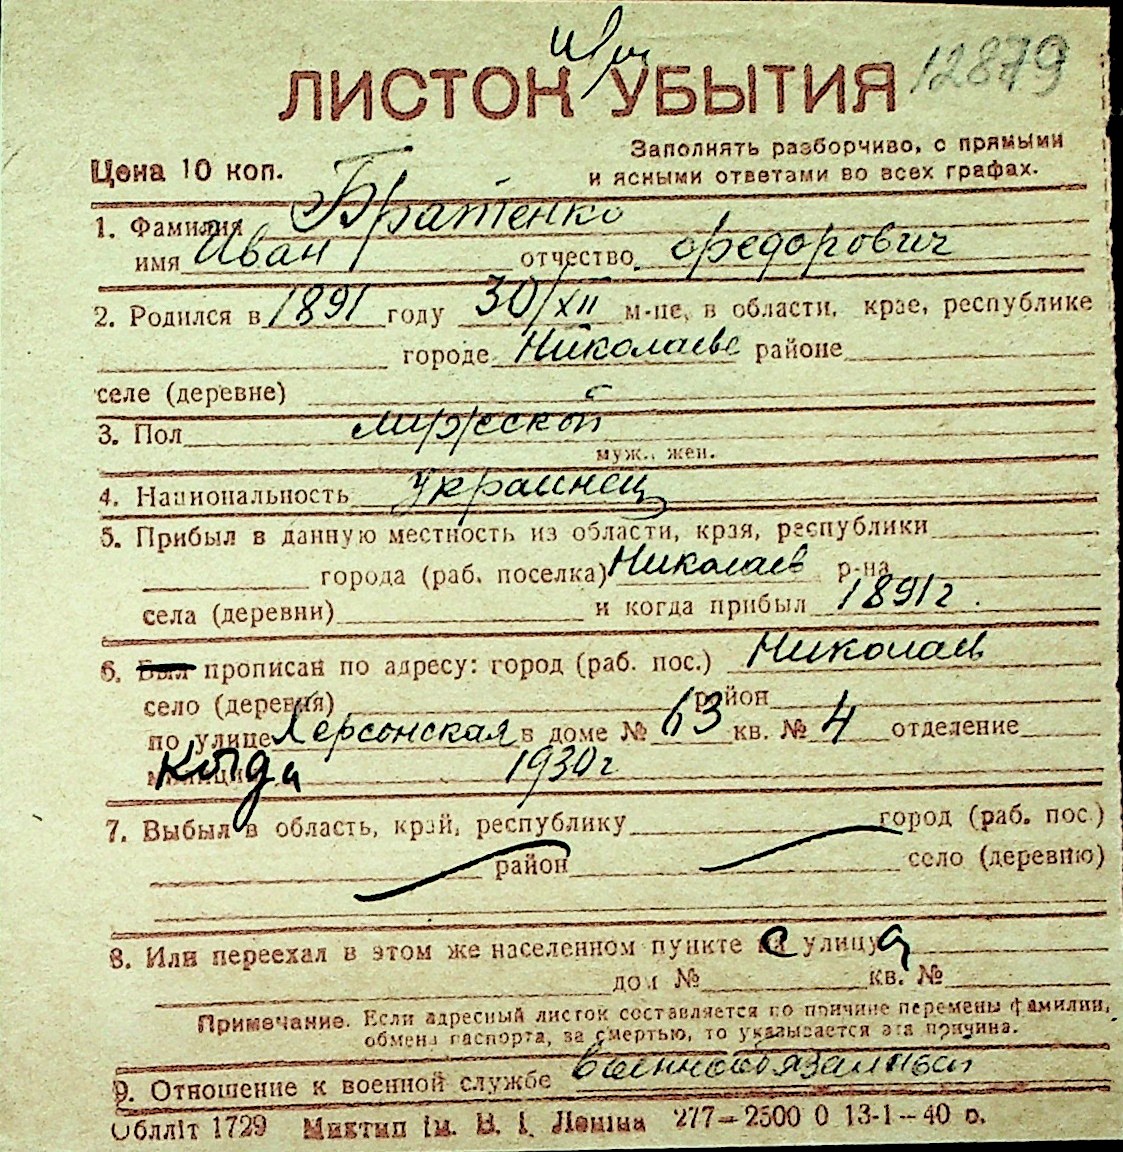 ЛИСТОК УБЫТИЯ 12879
Цена 10 коп.
Заполнять разборчиво, с прямыми
и ясными ответами во всех графах.
1. Фамилия Братенко
имя Иван отчество Федорович
2. Родился в 1891 году 30/XII м-це, в области, крае, республике
городе Николаеве районе
селе (деревне)
3. Пол мужской
муж., жен.
4. Национальность украинец
5. Прибыл в данную местность из области, края, республики
города (раб. поселка) Николаев р-на
села (деревни) и когда прибыл 1891 г.
6. Был прописан по адресу: город (раб. пос.) Николаев
село (деревня) район
по улице Херсонская в доме № 63 кв. № 4 отделение
милиции Когда 1930 г
7. Выбыл в область, край, республику город (раб. пос.)
район село (деревню)
8. Или переехал в этом же населенном пункте на с улицу а
дом № кв. №
Примечание. Если адресный листок составляется по причине перемены фамилии,
обмена паспорта, за смертью, то указывается эта причина.
9. Отношение к военной службе военнообязанный
Обллiт 1729 Миктип iм. В. I. Ленiна 277—2500 0 13-1—40 р.